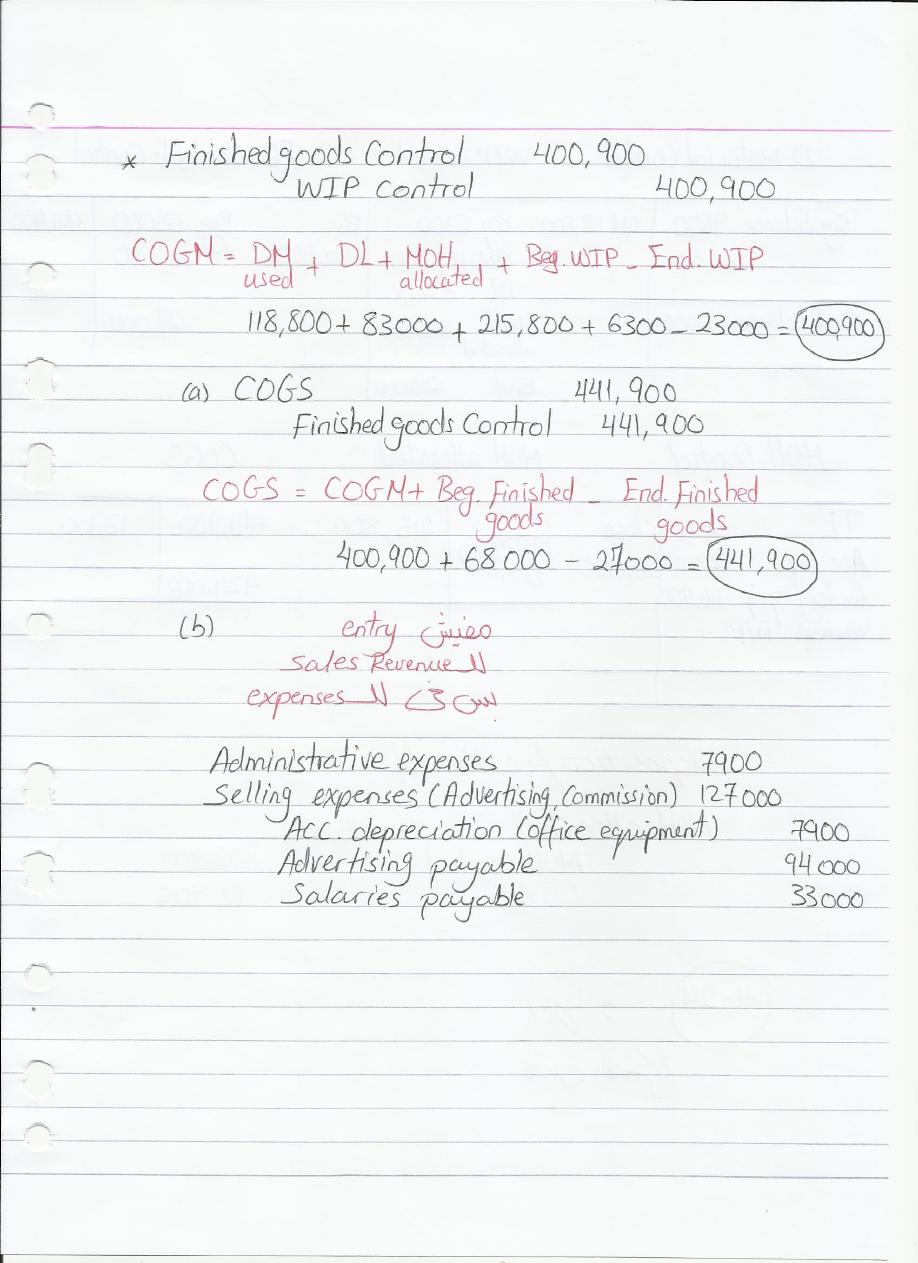 * Finished goods Control 400,900
WIP Control 400,900
COGM = DM used + DL + MOH allocated + Beg. WIP - End. WIP
118,800 + 83000 + 215,800 + 6300 - 23000 = 400,900
(a) COGS 441,900
Finished goods Control 441,900
COGS = COGM + Beg. Finished goods - End. Finished goods
400,900 + 68000 - 27000 = 441,900
(b) مفيش entry
لل Sales Revenue
بس في لل expenses
Administrative expenses 7900
Selling expenses (Advertising, Commission) 127000
Acc. depreciation (office equipment) 7900
Advertising payable 94000
Salaries payable 33000